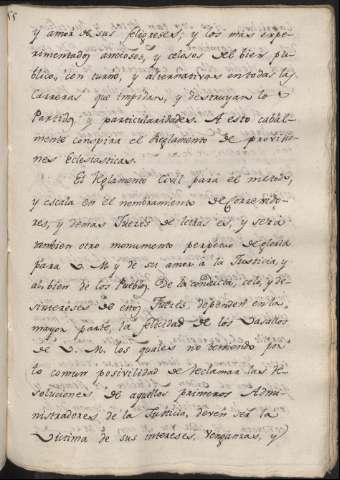 y amor de sus feligreses, y los mas expe-
rimentados ancianos, y celosos del bien pu-
blico, con turno, y alternativas en todas las
Carreras que impidan, y destruyan los
Partidos y particularidades. A esto cabal-
mente conspira el Reglamento de provisio-
nes eclesiasticas.
El Reglamento Civil para el metodo,
y escala en el nombramiento de Corregido-
res, y demas Jueces de letras es, y será
tambien otro monumento perpetuo de gloria
para V. M. y de su amor à la Justicia, y
al bien de los Pueblos. De la conducta, celo, y de-
sinteres de estos Jueces dependen en la
mayor parte, la felicidad de los Vasallos
de V. M. los quales no teniendo por
lo comun posivilidad de declamar las re-
soluciones de aquellos primeros Admi-
nistradores de la Justicia, deven ser la
Victima de sus intereses, venganzas, y